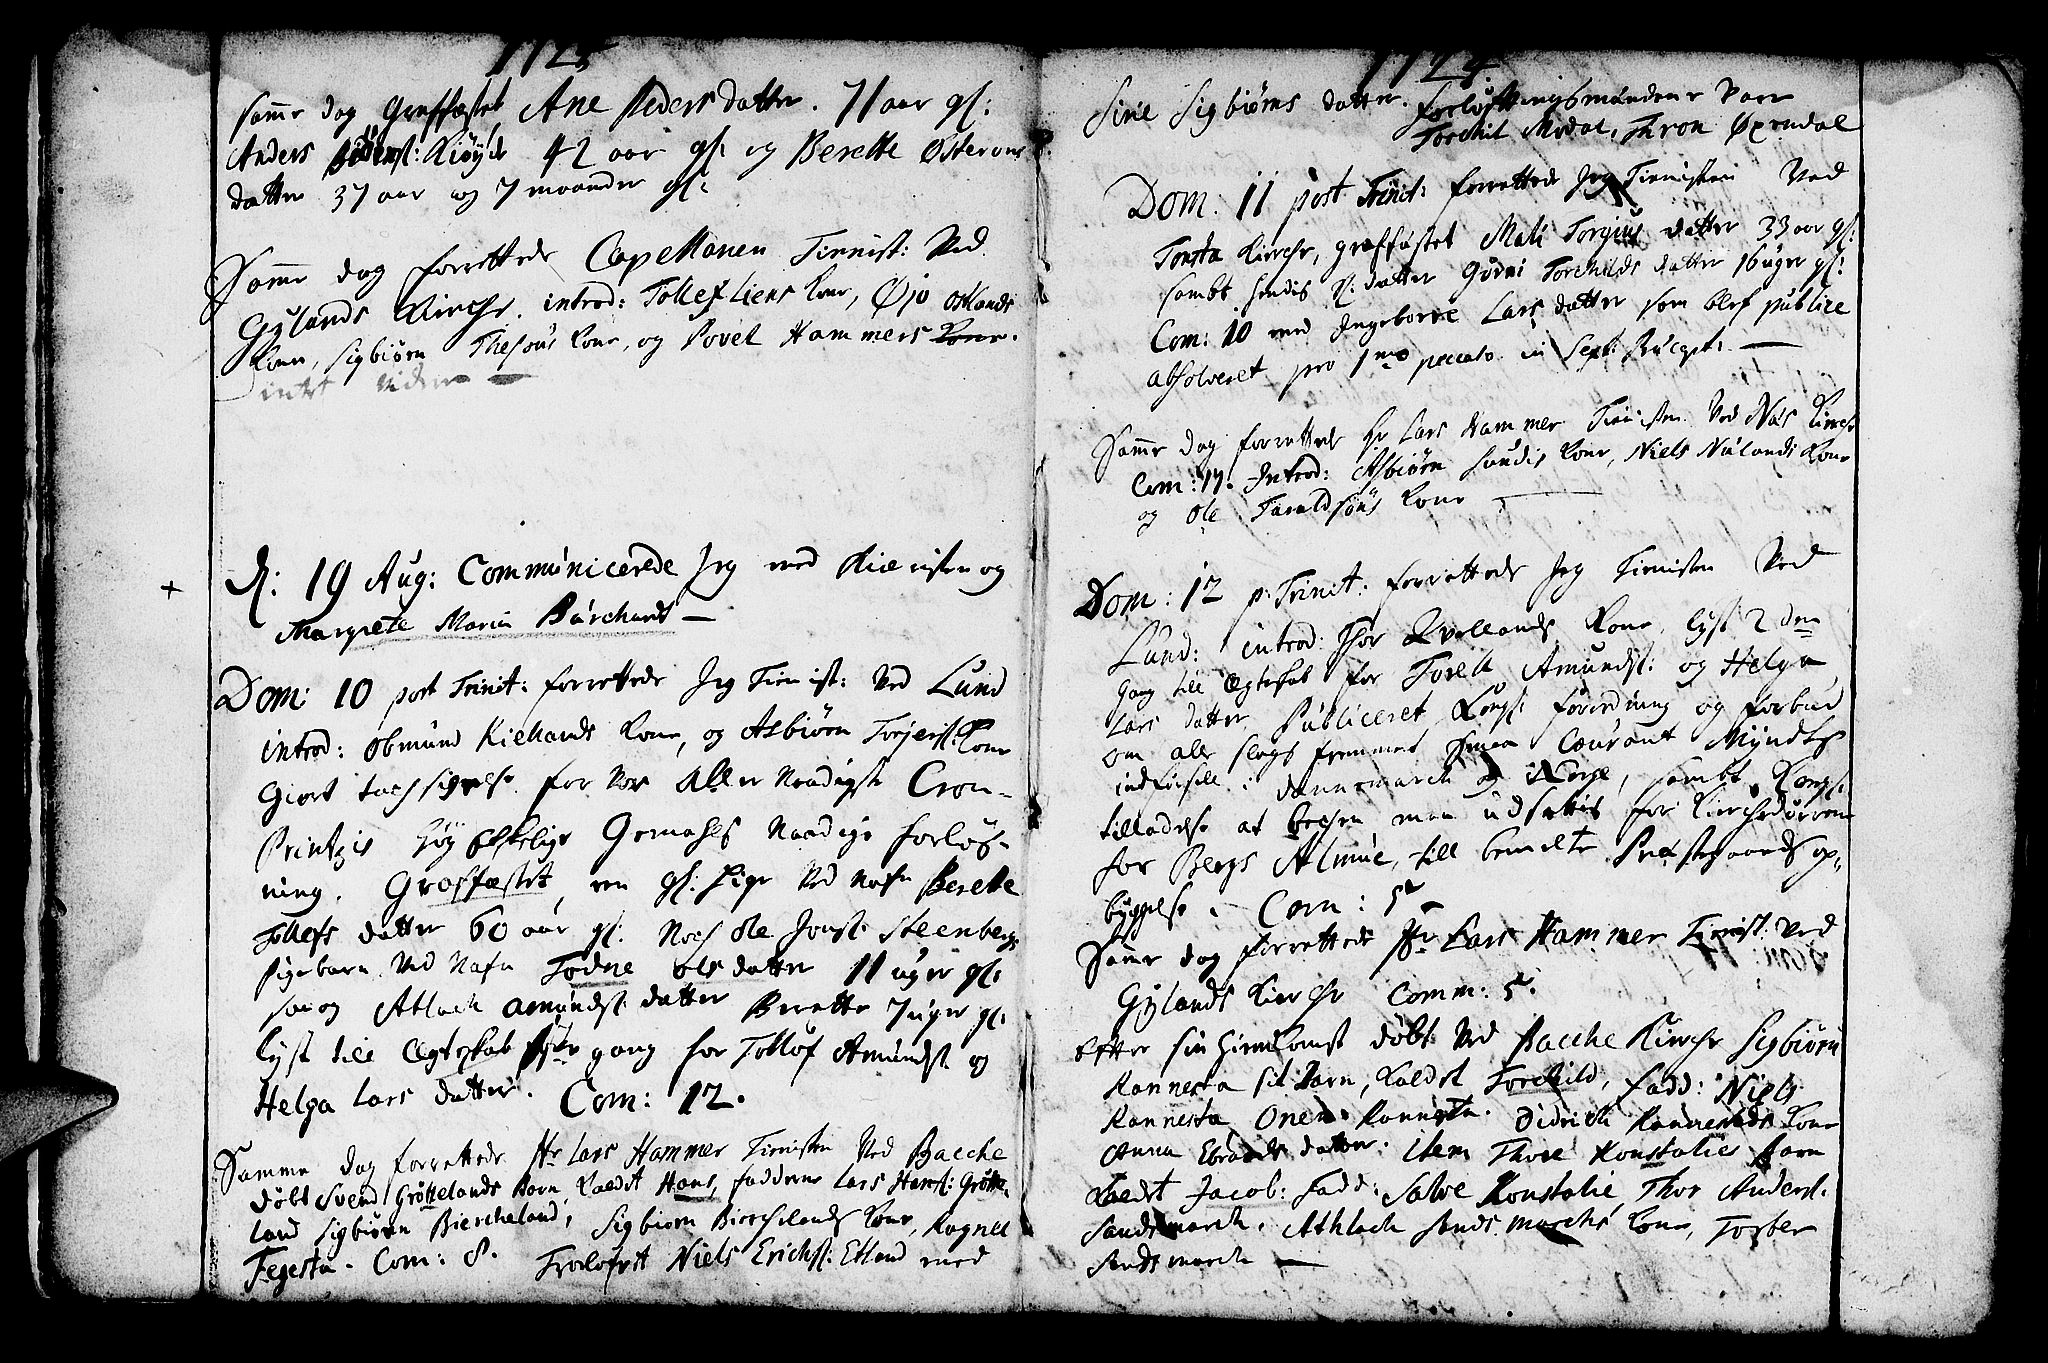 1724
samme dag Graffæstet Ane Peders datter. 71 aar gl:
Anders 42 aar gl: og Berette Osterons
datter 37 aar og 7 maander gl:
Samme dag forrettede Capellanen Tienist: Ved
Gylands Kirche. introd: Tollef Liens Kone, Osulands
Kone, Sigbiørn Kone, og Povel Hammers Kone.
intet videre —
d: 19 Aug: Communicerede Jeg med og
Margrete Maria Burchard —
Dom: 10 post Trinit: forrettede Jeg Tienist: Ved Lund
introd: Obmund Kiellands Kone, og Asbiørn Torjers: Kone
Giort tachsigelse for vor Aller Naadigste Cron-
Printzis høy Gemahls Naadige forløs-
ning. Graffæstet en gl: Pige Ved Nafn Berette
Tollefs datter 60 aar gl. Noch Ole Jons: Steenbergs
pigebarn Ved Nafn Todne Ols datter 11 uger gl:
saa og Atlach Amunds: datter Berette 7 uger gl:
lyst till Egteskab første gang for Tollof Amunds: og
Helga Lars datter. Com: 12.
Samme dag forrettede Hr Lars Hammer Tienisten Ved Bacche
døbt Svend Grøttelands Barn, Kaldet Hans, faddrene Lars Hans: Grøtte-
land Sigbiørn Biercheland, Sigbiørn Bierchelands Kone, Ragnel
Tegesta. Com: 8. Trolofvet Niels Erichs: Etland med
1724
Sirie Sigbiørns datter. Forløftningsmændene vare
Torchil Modal, Thron Øxendal
Dom. 11 post Trinit: forrettede Jeg Tienisten Ved
Tonsta Kirche, graffæstet Mali Torgius datter 33 aar gl:
sambt hendis datter Guroni Torchilds datter 16 uger gl:
Com: 10 med Ingeborre Lars datter som blef publice
absolveret pro 1mo peccato in Sext: præcept: —
Samme dag forrettede Hr Lars Hammer Tienisten Ved Næs Kirche
Com: 17. Introd: Asbiørn Kone, Niels Nulands Kone
og Ole Taraldsøns Kone —
Dom: 12 p: Trinit: forrettede Jeg Tienisten Ved
Lund: introd: Thor Qvellands Kone, lyst 2den
gang till Egteskab for Torell Amunds: og Helga
Lars datter, Publiceret Kongl: forordning og forbud
om alle slags fremmet Smaa Courant Myndts
indførsell i Dannemarch og Norge, sambt Kongl:
tilladelse at bechen maa udsættis for Kirchedørrene
for Bergs Almue, till bemelte Præstegaards op-
byggelse. Com: 5
Samme dag forrettede Hr Lars Hammer Tienist: Ved
Gylands Kirche Comm: 5.
efter sin Hiemkomst døbt Ved Bacche Kirche Sigbiørn
Rannesta sit Barn, Kaldet Torchild, fadd: Niels
Rannesta Onen Rannesta. Didrich Rannestads Kone
Anna Ebraads datter. item Thore Konstalies Barn
Kaldet Jacob: Fadd: Salve Konstalie Thor Anders:
Sandsmarch, Athlach Sandsmarchs Kone, Torber
Sandsmarch —